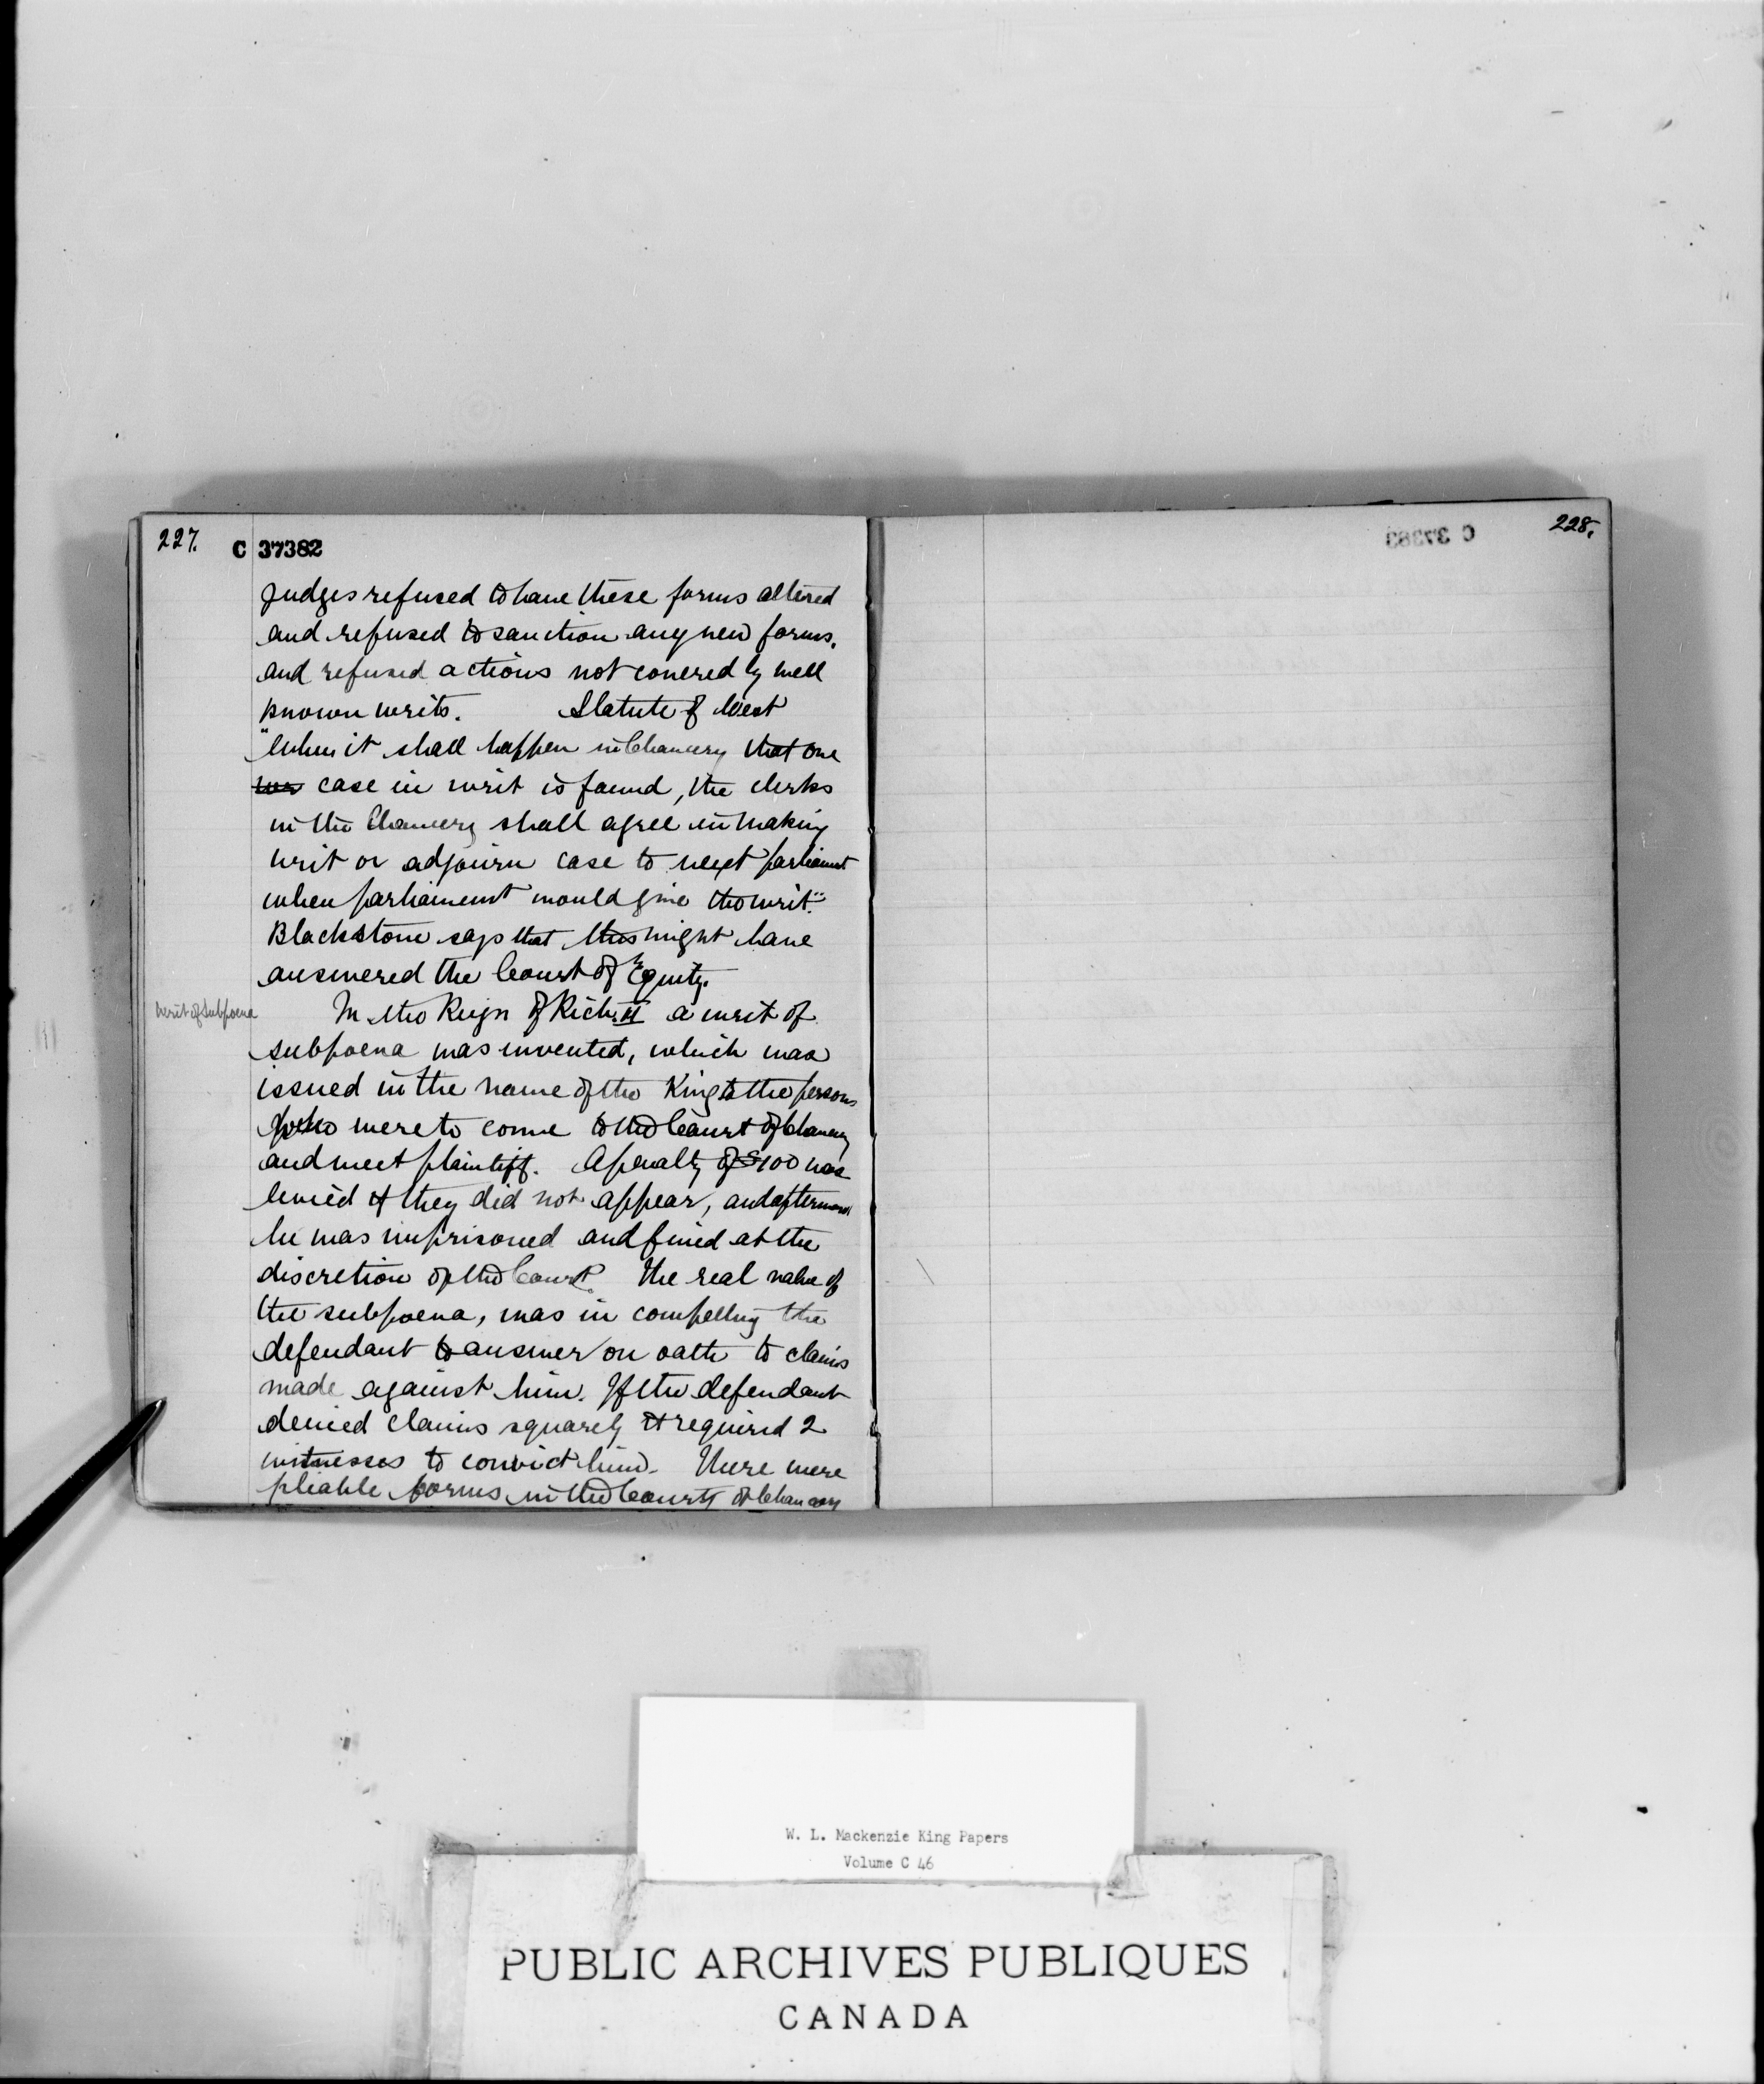 227.
C 37382
Judges refused to have these forms altered
and refused to sanction any new forms.
and refused actions not covered by well
known writs. Statute of West
"When it shall happen in Chancery that one
case in writ is found, the clerks
in the Chancery shall agree in making
writ or adjourn case to next parliament
when parliament would give the writ."
Blackstone says that this might have
answered the Court of Equity.
Writ of Subpoena
In the Reign of Rich. II a writ of
subpoena was invented, which was
issued in the name of the King to the persons
who were to come to the Court of Chancery
and meet plaintiff. A penalty of $100 was
levied if they did not appear, and afterward
he was imprisoned and fined at the
discretion of the Court. The real value of
the subpoena, was in compelling the
defendant to answer on oath to claims
made against him. If the defendant
denied claims squarely it required 2
witnesses to convict him. There were
pliable forms in the Courts of Chancery
228.
C 37383
W. L. Mackenzie King Papers
Volume C 46
PUBLIC ARCHIVES PUBLIQUES
CANADA